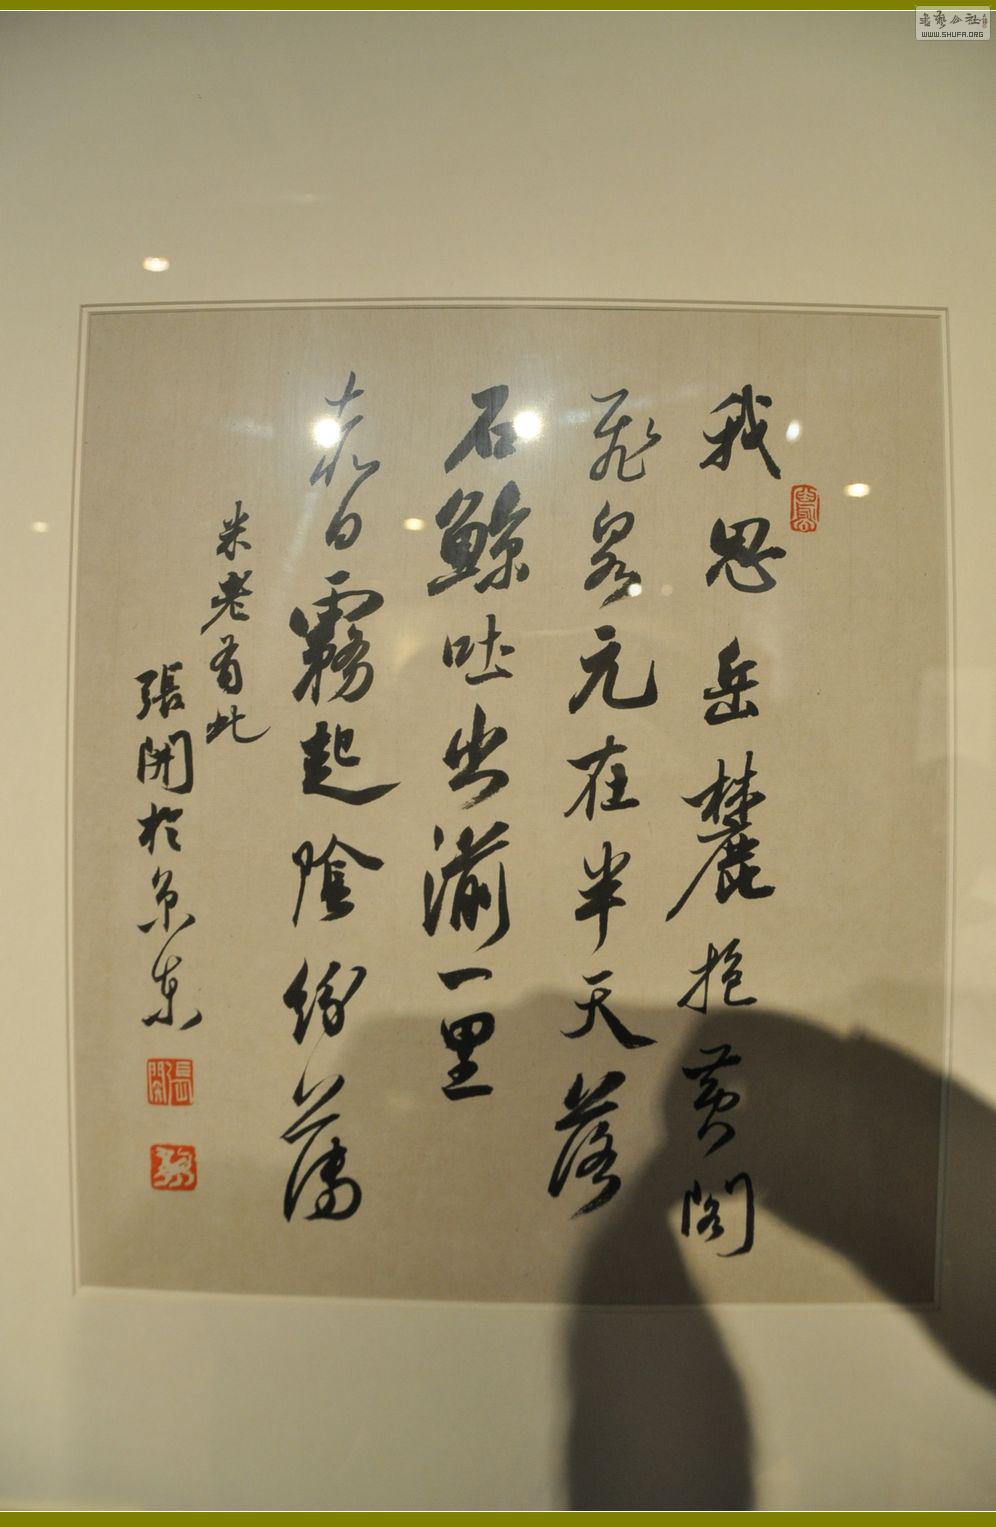 書藝公社
WWW.SHUFA.ORG
我思岳麓抱黄閣
飛泉元在半天落
石鯨吐出湔一里
赤日霧起陰紛薄
米老 此
張開於京東
張開